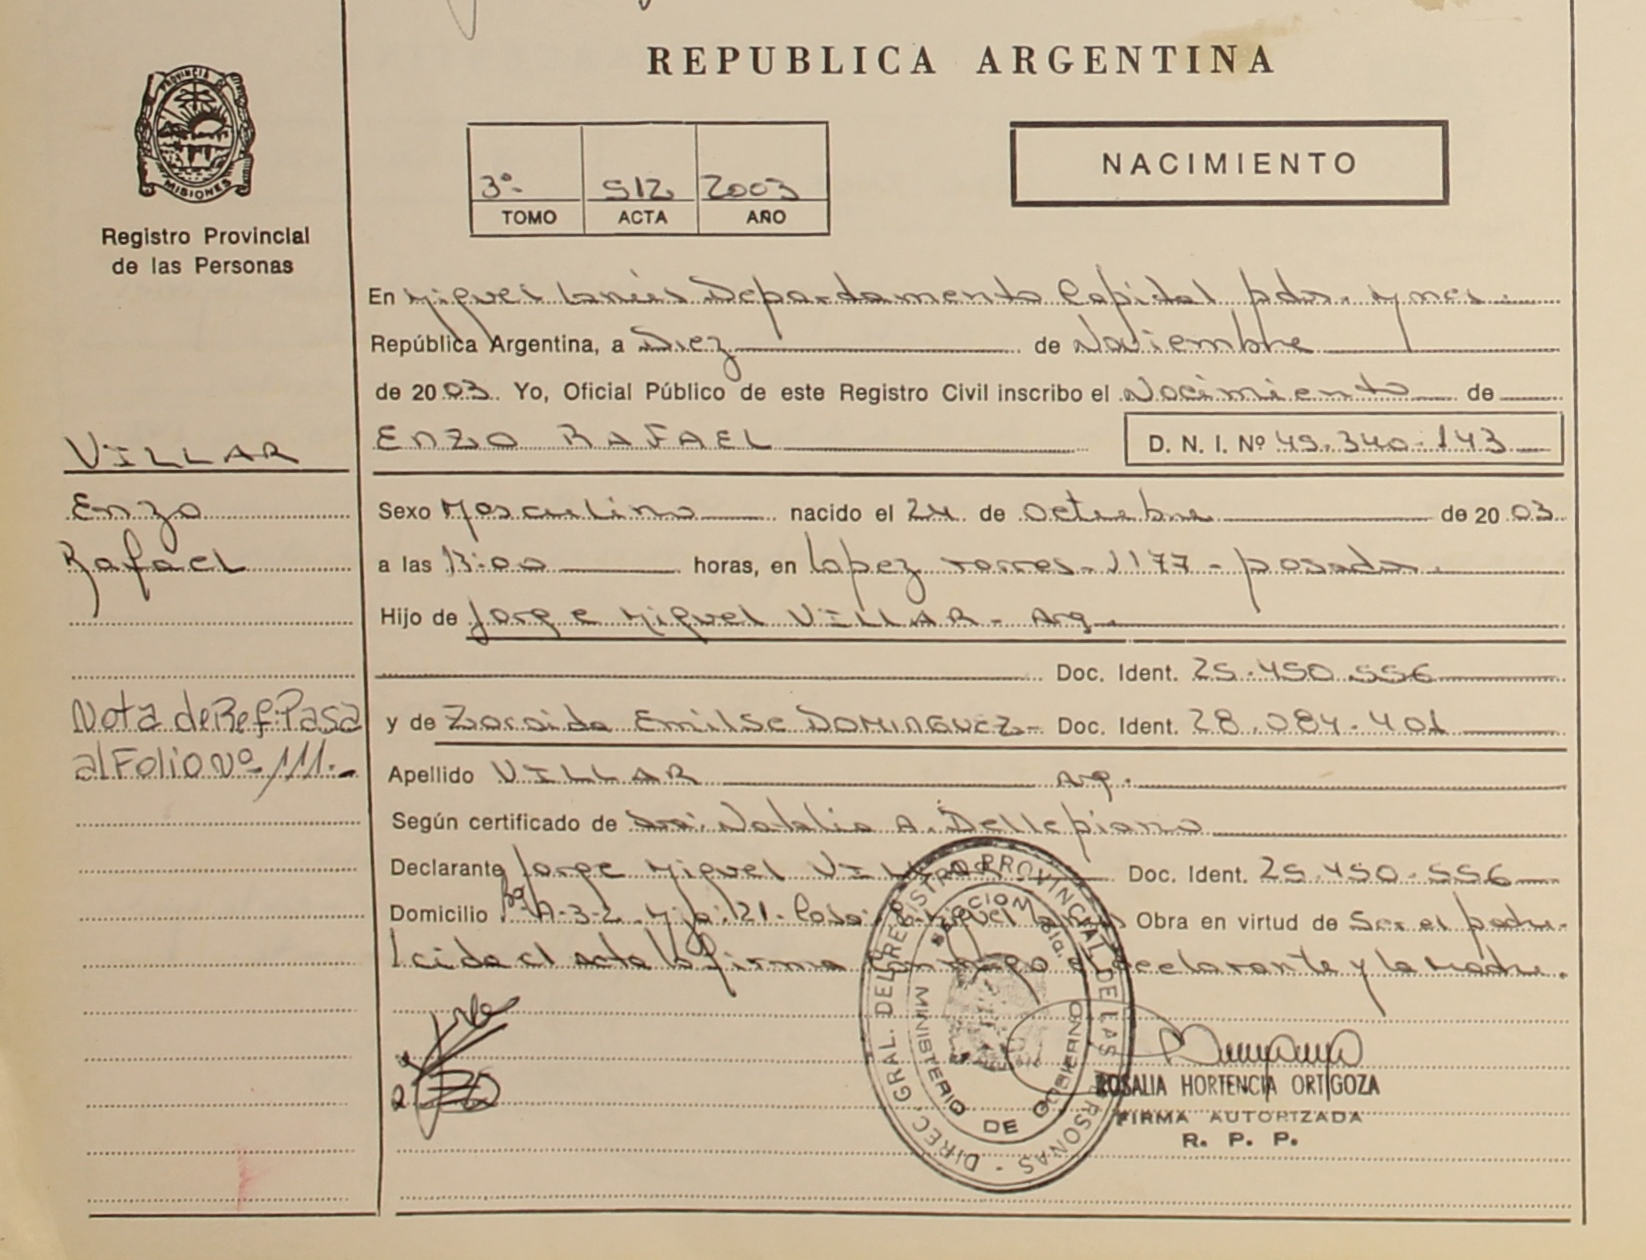 REPUBLICA ARGENTINA
PROVINCIA
MISIONES
Registro Provincial
de las Personas
3º 512 2003
TOMO ACTA AÑO
NACIMIENTO
En Miguel Lanús Departamento Capital pdas. Mnes.
República Argentina, a Diez de Noviembre
de 2003. Yo, Oficial Público de este Registro Civil inscribo el Nacimiento de
ENZO RAFAEL D. N. I. Nº 45.340.143
VILLAR
Enzo
Rafael
Sexo Masculino nacido el 24 de octubre de 2003
a las 13:00 horas, en Lopez Torres - 1177 - posadas.
Hijo de Jorge Miguel VILLAR - Arg.
Doc. Ident. 25.450.556
Nota de Ref: Pasa
al Folio Nº 111.-
y de Zoraida Emilse DOMINGUEZ - Doc. Ident. 28.084.401
Apellido VILLAR Arg.
Según certificado de Dra. Natalia A. Dellepiano
Declarante Jorge Miguel VILLAR Doc. Ident. 25.450.556
Domicilio A-3-2 121 - Casa Miguel Lanús Obra en virtud de Ser el padre.
Leida el acta la firma conmigo el declarante y la madre.
DIREC. GRAL. DEL REGISTRO PROVINCIAL DE LAS PERSONAS
MINISTERIO DE GOBIERNO
ROSALIA HORTENCIA ORTIGOZA
FIRMA AUTORIZADA
R. P. P.